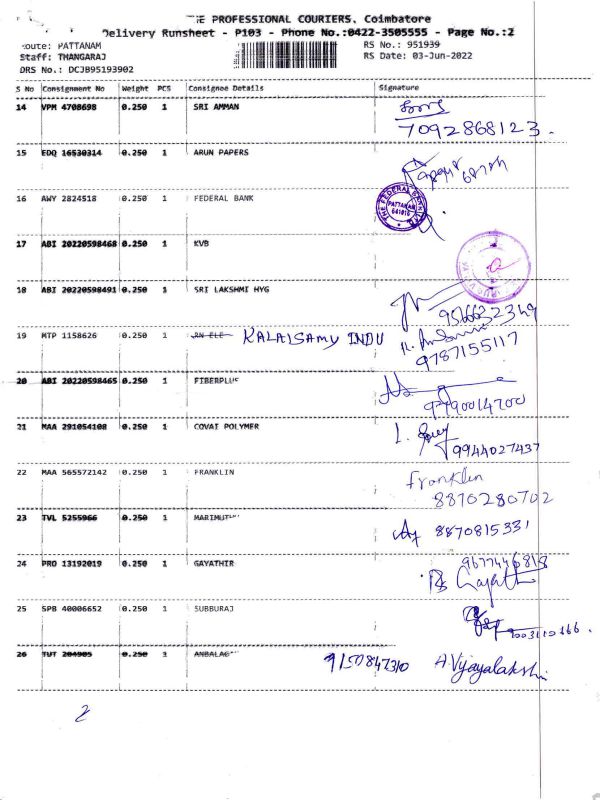 THE PROFESSIONAL COURIERS, Coimbatore
Delivery Runsheet - P103 - Phone No.:0422-3505555 - Page No.:2
Route: PATTANAM
RS No.: 951939
Staff: THANGARAJ
RS Date: 03-Jun-2022
DRS No.: DCJB95193902
S No Consignment No Weight PCS Consignee Details Signature
14 VPM 4708698 0.250 1 SRI AMMAN
7092868123.
15 EDQ 16530314 0.250 1 ARUN PAPERS
16 AWY 2824518 0.250 1 FEDERAL BANK
THE FEDERAL BANK
PATTANAM
641016
17 ABI 20220598468 0.250 1 KVB
18 ABI 20220598491 0.250 1 SRI LAKSHMI HYG
9566632349
19 MTP 1158626 0.250 1 RN ELE KALAISAMY INDU
9787155117
20 ABI 20220598465 0.250 1 FIBERPLUS
9790014700
21 MAA 291054108 0.250 1 COVAI POLYMER
9944027437
22 MAA 565572142 0.250 1 FRANKLIN Franklin
8870280702
23 TVL 5255966 0.250 1 MARIMUTHU
8870815331
24 PRO 13192019 0.250 1 GAYATHIR
9677446818
25 SPB 40006652 0.250 1 SUBBURAJ
26 TUT 204905 0.250 1 ANBALAG 9150847310 A.Vijayalakshmi
2